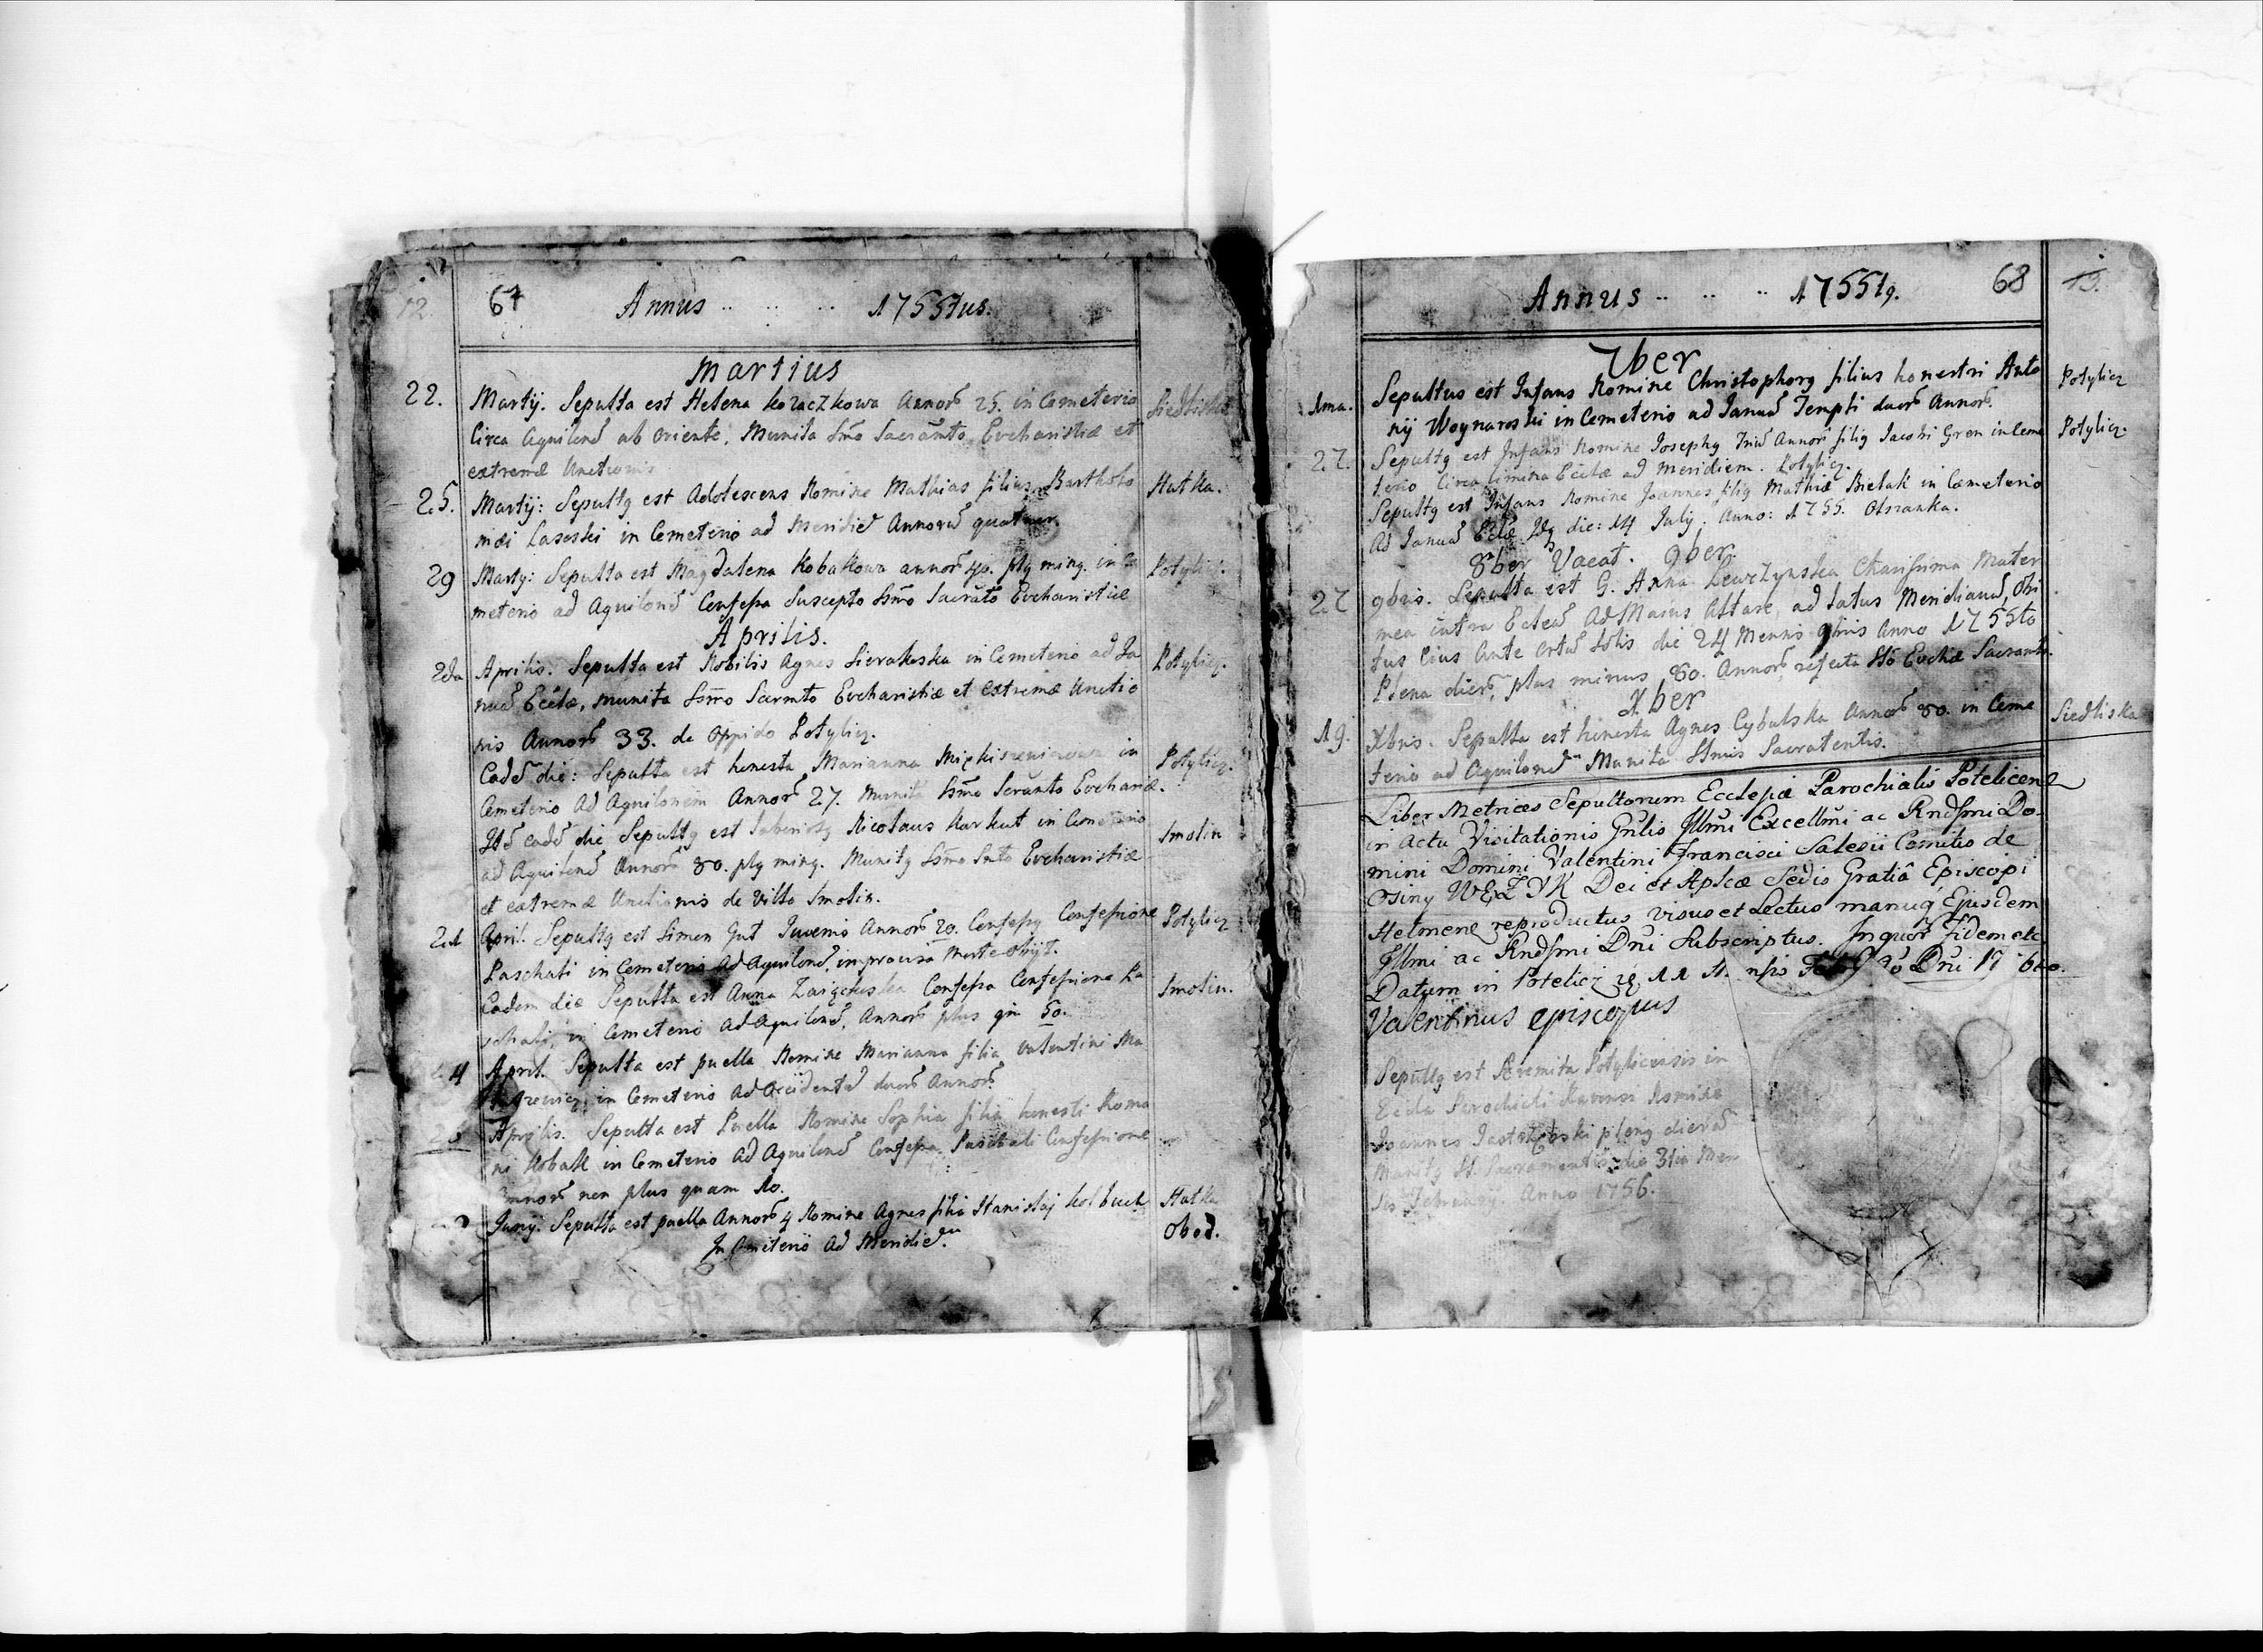 12.
67
Annus .. .. .. 1755tus.
Martius
22. Martÿ. Sepulta est Helena Kozaczkowa Annor̃ 25. in Cemeterio Siedliska
Circa Aquilone͂ ab Oriente, Munita Sm̃o Sacram̃to Eucharistiæ et
extremæ Unctionis
25. Martÿ: Sepultg est Adolescens Nomine Mathias filius Bartholo Hutka.
mæi Laseski in Cemeterio ad Meridie͂ Annoru͂ quatuor
29 Marty: Sepulta est Magdalena Kobakowa annor̃ 40. plg ming. in Ce Potylicz.
meterio ad Aquilone͂ Confessa Suscepto Ssm̃o Sacrãto Eucharistiæ
Aprilis.
2da Aprilis. Sepulta est Nobilis Agnes Sierakoska in Cemeterio ad Ja Potylicz.
nua͂ Ecclæ, munita Ssm̃o Sacrmto Eucharistiæ et Extremæ Unctio
nis Annor̃ 33. de Oppido Potylicz.
Eade͂ die: Sepulta est honesta Marianna in Potylicz.
Cemeterio Ad Aquilonem Annor̃ 27. Munita Ssm̃o Scrãnto Euchariæ.
Ite͂ eade͂ die Sepultg est laboriosg Nicolaus Karkut in Cemeterio Smolin
ad Aquilone͂ Annor̃ 80. plg ming. Munitg Ssm̃o Snto Eucharistiæ
et extremæ Unctionis de Villa Smolin.
21 April. Sepultg est Simon Gut Juvenis Annor̃ 20. Confessg Confessione Potylicz
Paschali in Cemeterio Ad Aquilone͂, improvisa Morte obijt.
Eadem die Sepulta est Anna Confessa Confessione Pa Smolin.
schali, in Cemeterio Ad Aquilone͂, Annor̃ plus qm 50.
April. Sepulta est puella Nomine Marianna filia Valentini Ma
in Cemeterio Ad Occidente͂ duor̃ Annor̃
Aprilis. Sepulta est Puella Nomine Sophia filia honesti Roma
ni Kobak in Cemeterio Ad Aquilone͂ Confessa Paschali Confessione
Annor̃ non plus quam 10.
Juny. Sepulta est puella Annor̃ 4 Nomine Agnes filia Stanislaj Kolbuch Hutka
In Cemiterio Ad Meridie͂. Obed.
Annus .. .. .. 1755tg. 68
13.
7ber
1ma. Sepultus est Infans Nomine Christophorg filius honestri Anto Potylicz
nij Woynaroski in Cemeterio ad Janua͂ Templi duor̃ Annor̃.
27. Sepultg est Infans Nomine Josephg Triu͂ Annor̃ filig Jacobi Gren in Ceme Potylicz.
terio Circa limina Ecclæ ad Meridiem. Potylicz.
Sepultg est Infans Nomine Joannes filig Mathiæ Bielak in Cæmeterio
Ad Janua͂ Eclæ die: 14 July. Anno: 1755. Olszanka.
8ber Vacat. 9ber.
27 9bris. Sepulta est G. Anna Lewczynska Charissima Mater
mea intra Eclea͂ Ad Maius Altare, ad latus Meridianu͂, Obi
tus Eius Ante ortu͂ Solis die 24 Mensis 9bris Anno 1755to
Plena dier̃, plus minus 80. Annor̃, refecta Sto Euchæ Sacramto.
Xber
19. Xbris. Sepulta est honesta Agnes Cybulska Annor̃ 80. in Ceme Siedliska
terio ad Aquilone͂ Munita Ssmis Sacratentis.
Liber Metrices Sepultorum Ecclesiæ Parochialis Potelicenæ
in Actu Visitationis Gñlis Illm̃i Excellm̃i ac Rndssmi Do-
mini Domini Valentini Francisci Salesii Comitis de
Osiny WĘŻYK Dei et Aplcæ Sedis Gratiâ Episcopi
reproductus visus et Lectus manuq́ Ejusdem
Illmi ac Rndssmi Dñi Subscriptus. In quor̃ Fidem etc.
Datum in Potelicz Dñi 17
Valentinus episcopus
Sepultg est Æremita Potylicensis in
Eccla Parochiali Ravensi Nomine
Joannes Jastrzębski pleng dieru͂
Munitg St. Sacramentis die 3tia Men
sis Februarÿ. Anno 1756.